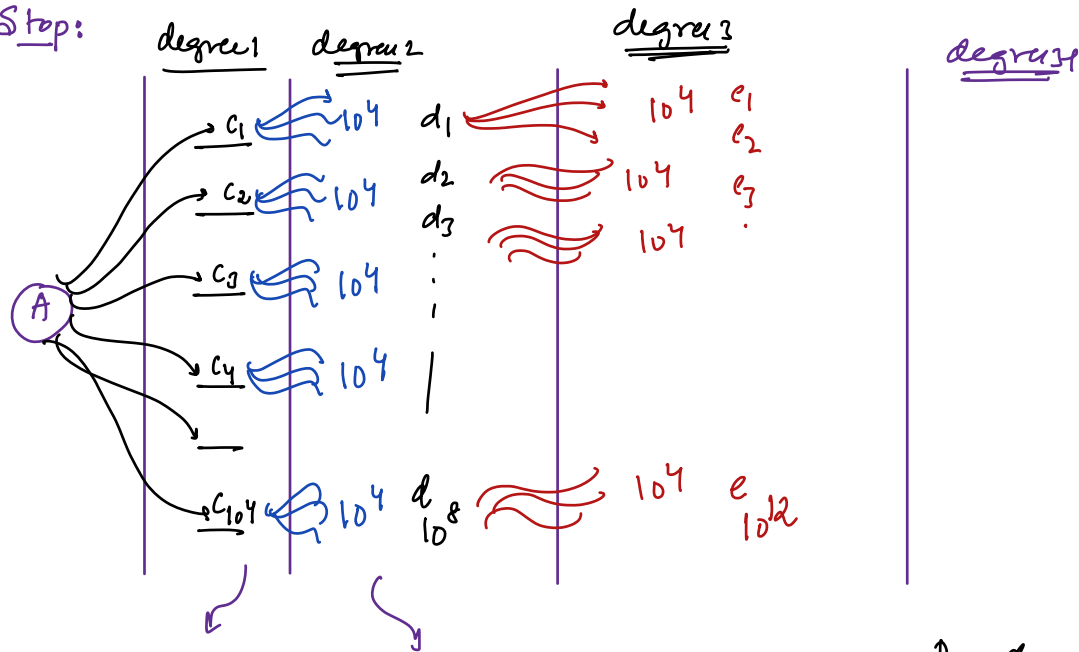 Stop:
degree1 degree2 degree3 degree4
c1 10^4 d1 10^4 e1
e2
c2 10^4 d2 10^4 e3
d3 10^4 .
c3 10^4
A
c4 10^4
c10^4 10^4 d10^8 10^4 e10^12